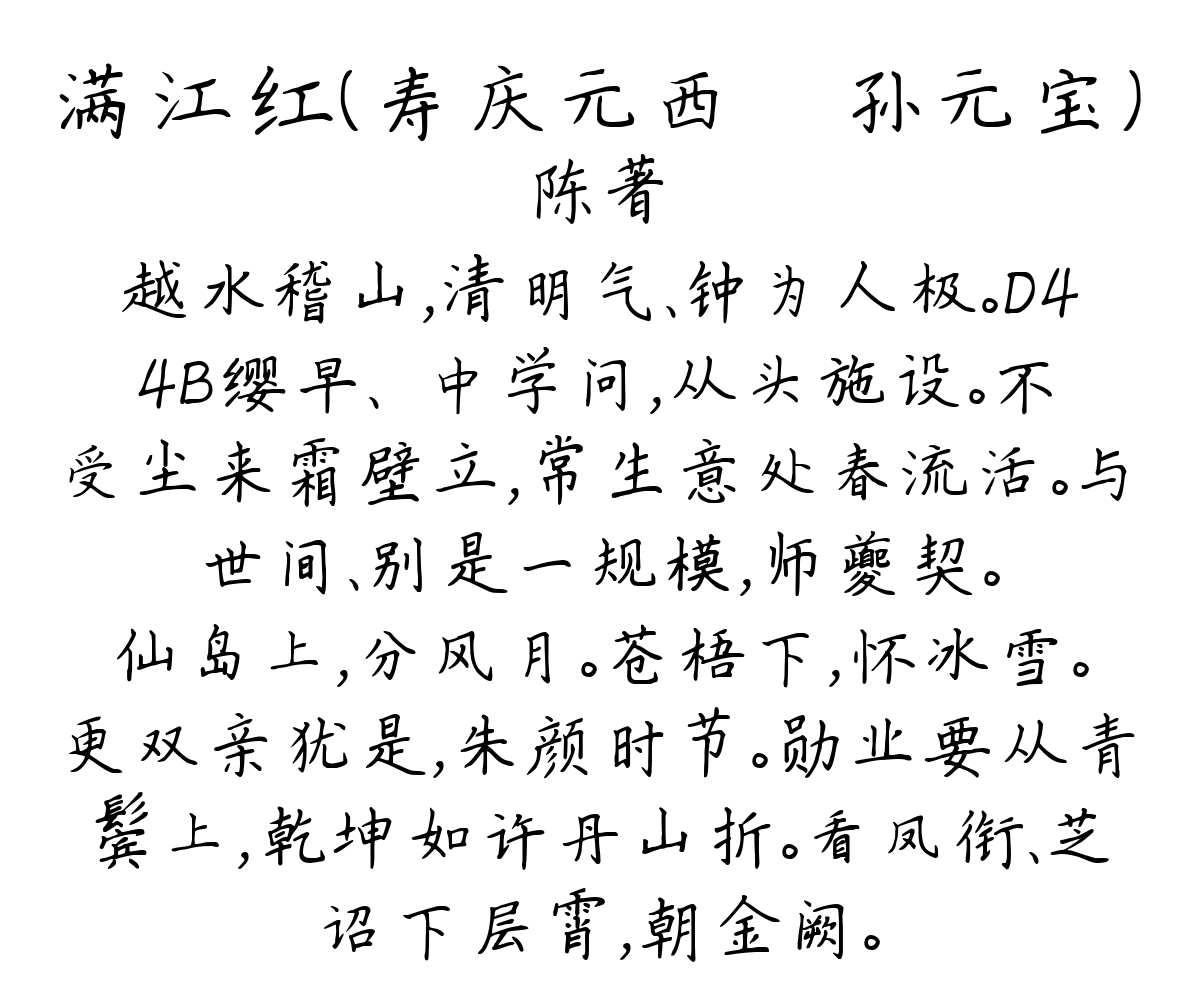 满江红(寿庆元西　孙元宝)
陈著
越水稽山,清明气、钟为人极。D4
4B缨早、中学问,从头施设。不
受尘来霜壁立,常生意处春流活。与
世间、别是一规模,师夔契。
仙岛上,分风月。苍梧下,怀冰雪。
更双亲犹是,朱颜时节。勋业要从青
鬓上,乾坤如许丹山折。看凤衔、芝
诏下层霄,朝金阙。